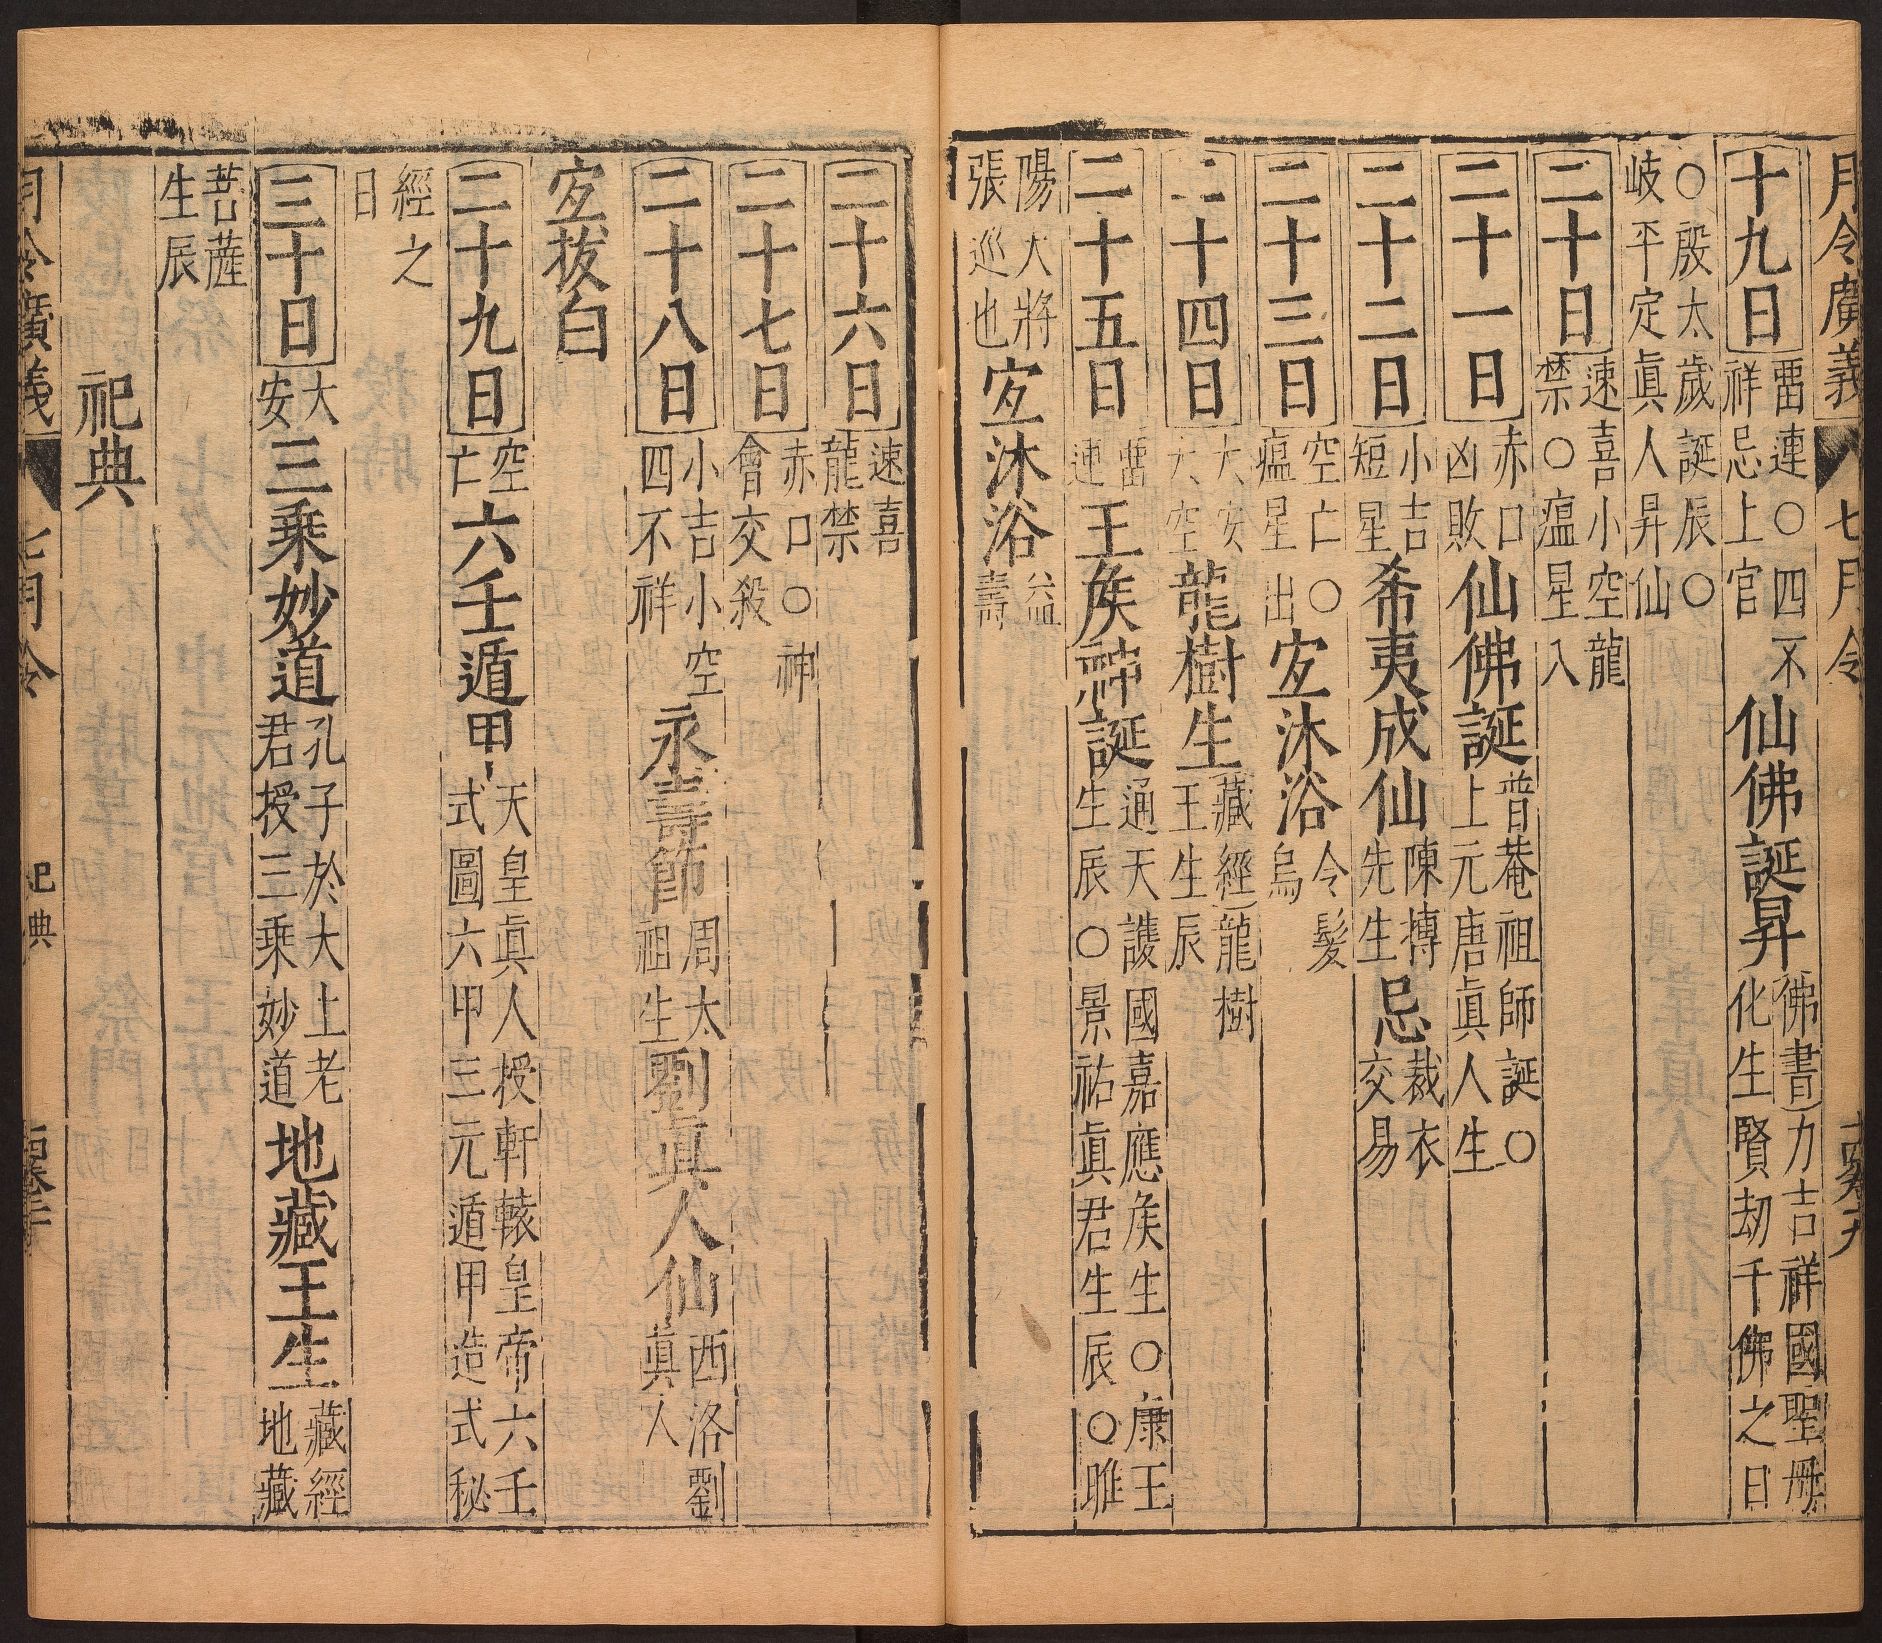 月令廣義 七月令
十九日 畱連○四不祥忌上官 仙佛誕昇 佛書力吉祥國聖母化生賢刧千佛之日
○殷太歲誕辰○岐平定眞人昇仙
二十日 速喜小空龍禁○瘟星入
二十一日 赤口凶敗 仙佛誕 普菴祖師誕○上元唐眞人生
二十二日 小吉短星 希夷成仙 陳摶先生 忌 裁衣交易
二十三日 空亡○瘟星出 宐沐浴 令髮烏
二十四日 大安大空 龍樹生 藏經龍樹王生辰
二十五日 畱連 王矦神誕 通天護國嘉應矦生○康王生辰○景祐眞君生辰○雎
陽大將張巡也 宐沐浴 益壽
二十六日 速喜龍禁
二十七日 赤口○神會交殺
二十八日 小吉小空四不祥 永壽節 周太祖生 劉眞人仙 西洛劉眞人
宐拔白
二十九日 空亡 六壬遁甲 天皇眞人授軒轅皇帝六壬式圖六甲三元遁甲造式秘
經之日
三十日 大安 三乘妙道 孔子於大上老君授三乘妙道 地藏王生 藏經地藏
菩薩生辰
祀典
月令廣義 七月令 祀典